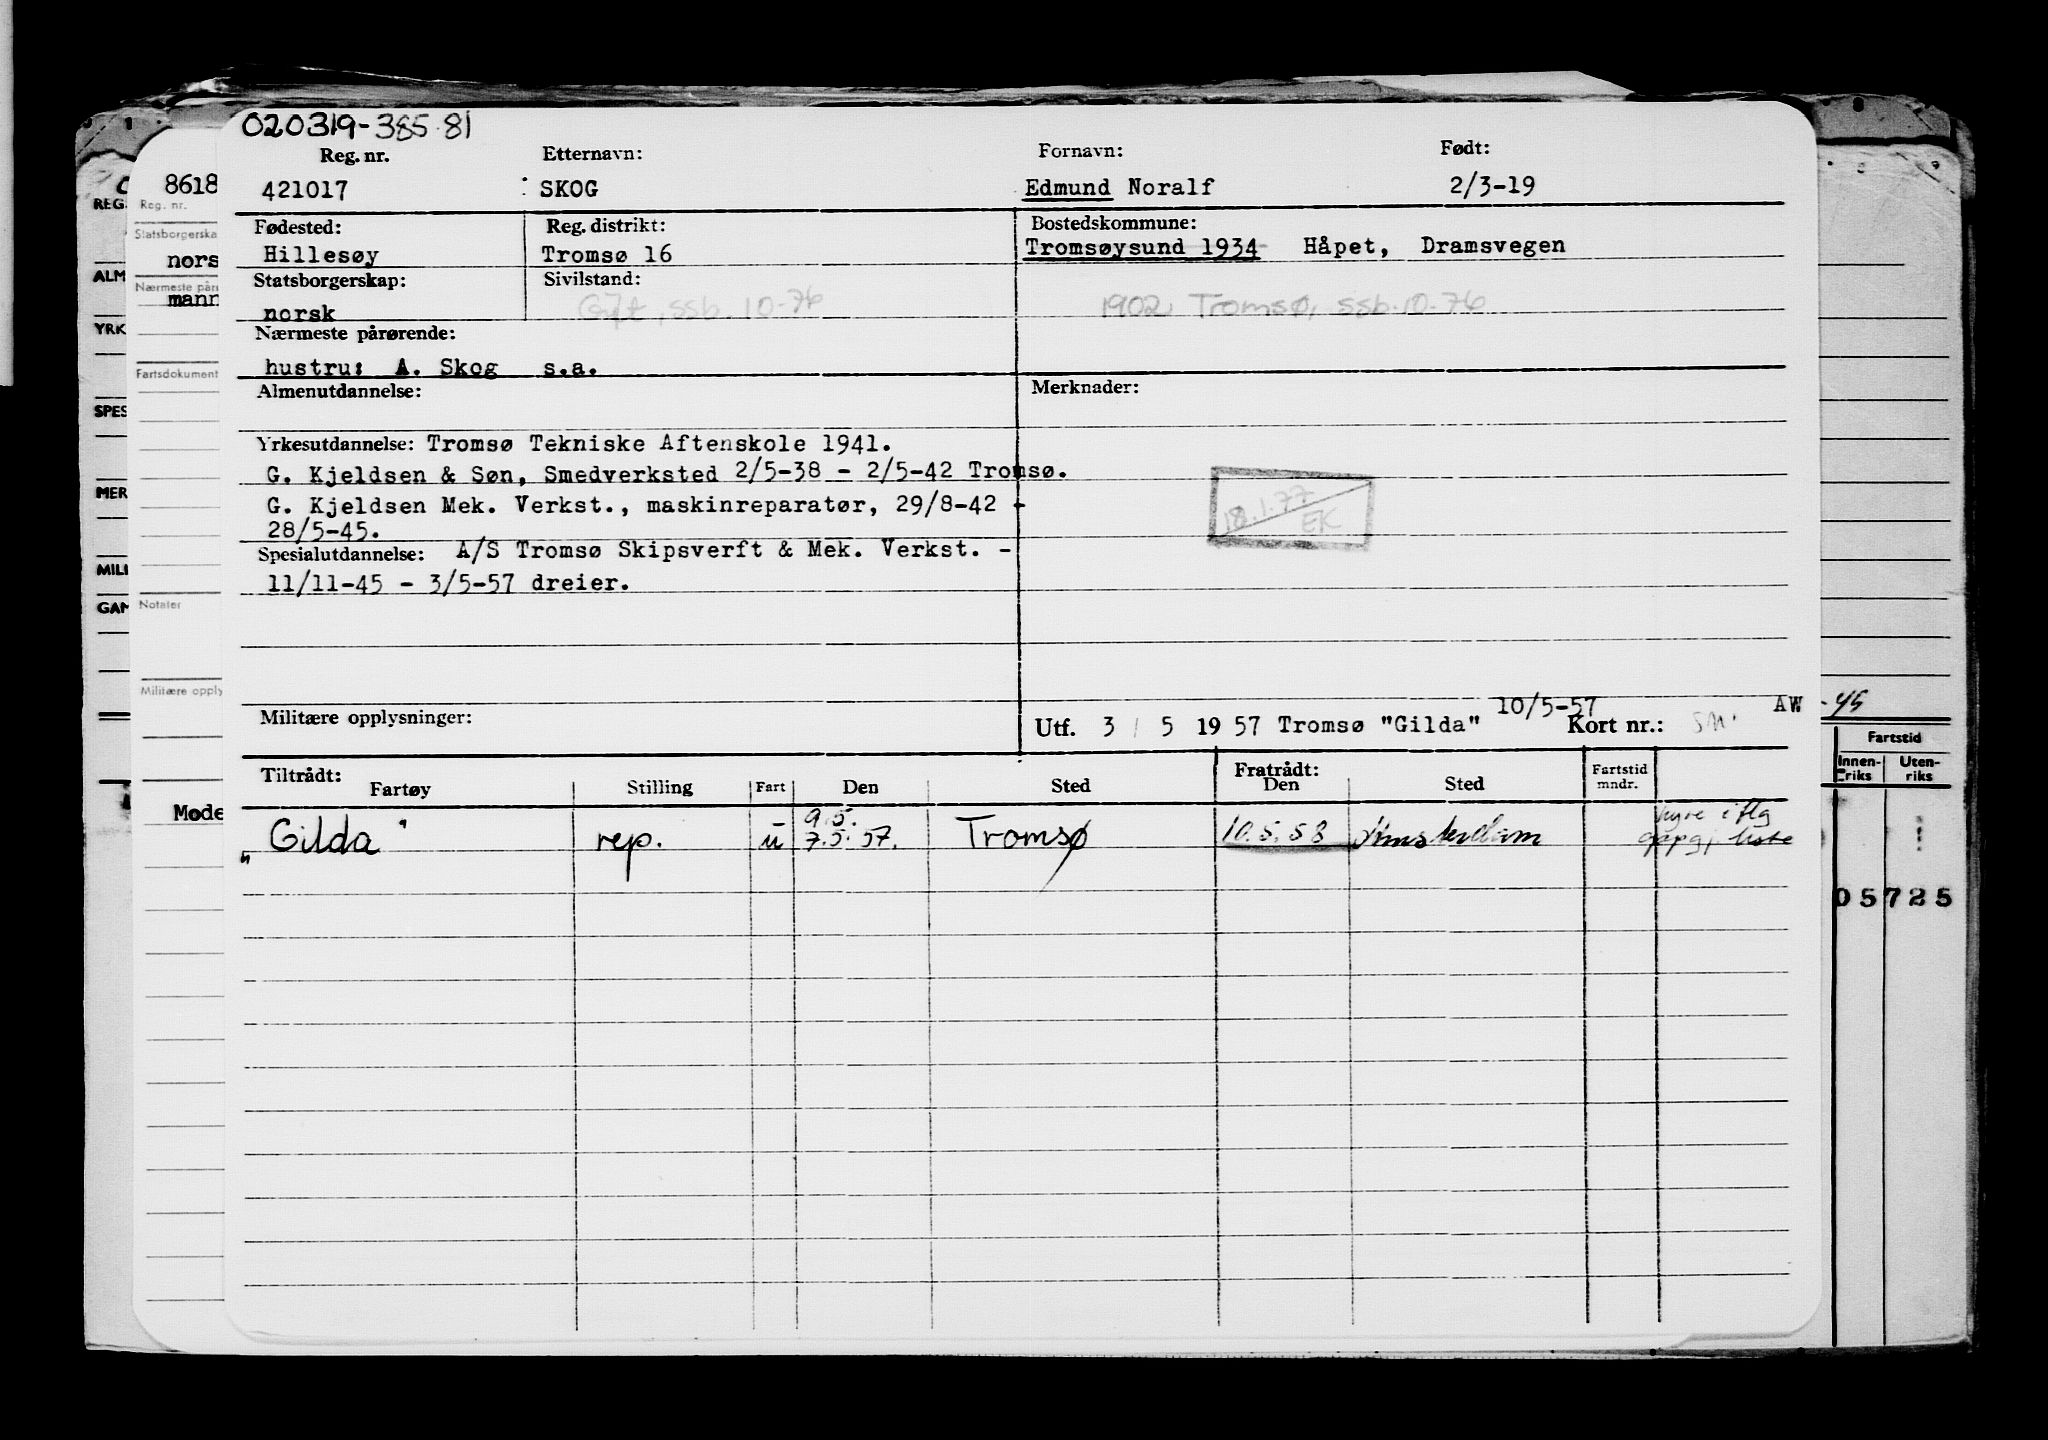 020319-385.81
Reg. nr. Etternavn: Fornavn: Født:
421017 SKOG Edmund Noralf 2/3-19
Fødested: Reg. distrikt: Bostedskommune:
Hillesøy Tromsø 16 Tromsøysund 1934 Håpet, Dramsvegen
Statsborgerskap: Sivilstand:
norsk Gift, ssb. 10-76 1902 Tromsø, ssb. 10-76
Nærmeste pårørende:
hustru: A. Skog s.a.
Almenutdannelse: Merknader:
Yrkesutdannelse: Tromsø Tekniske Aftenskole 1941.
G. Kjeldsen & Søn, Smedverksted 2/5-38 - 2/5-42 Tromsø.
G. Kjeldsen Mek. Verkst., maskinreparatør, 29/8-42 -
28/5-45.
18.1.77
EK
Spesialutdannelse: A/S Tromsø Skipsverft & Mek. Verkst. -
11/11-45 - 3/5-57 dreier.
10/5-57 AW
Militære opplysninger: Utf. 3 / 5 19 57 Tromsø "Gilda" Kort nr.:
Tiltrådt: Fratrådt:
Fartøy Stilling Fart Den Sted Den Sted Fartstid mndr.
9.5.
"Gilda" rep. u 7.5.57. Tromsø 10.5.58 Amsterdam
8618
Reg. nr.
Statsborgerska
nors
Nærmeste påre
mann
Fartsdokument
Notater
Militære opply
Mode
REG.
ALM
YRK
SPES
MER
MILI
GAN
-45
Fartstid
Innen-
riks
Uten-
riks
05725